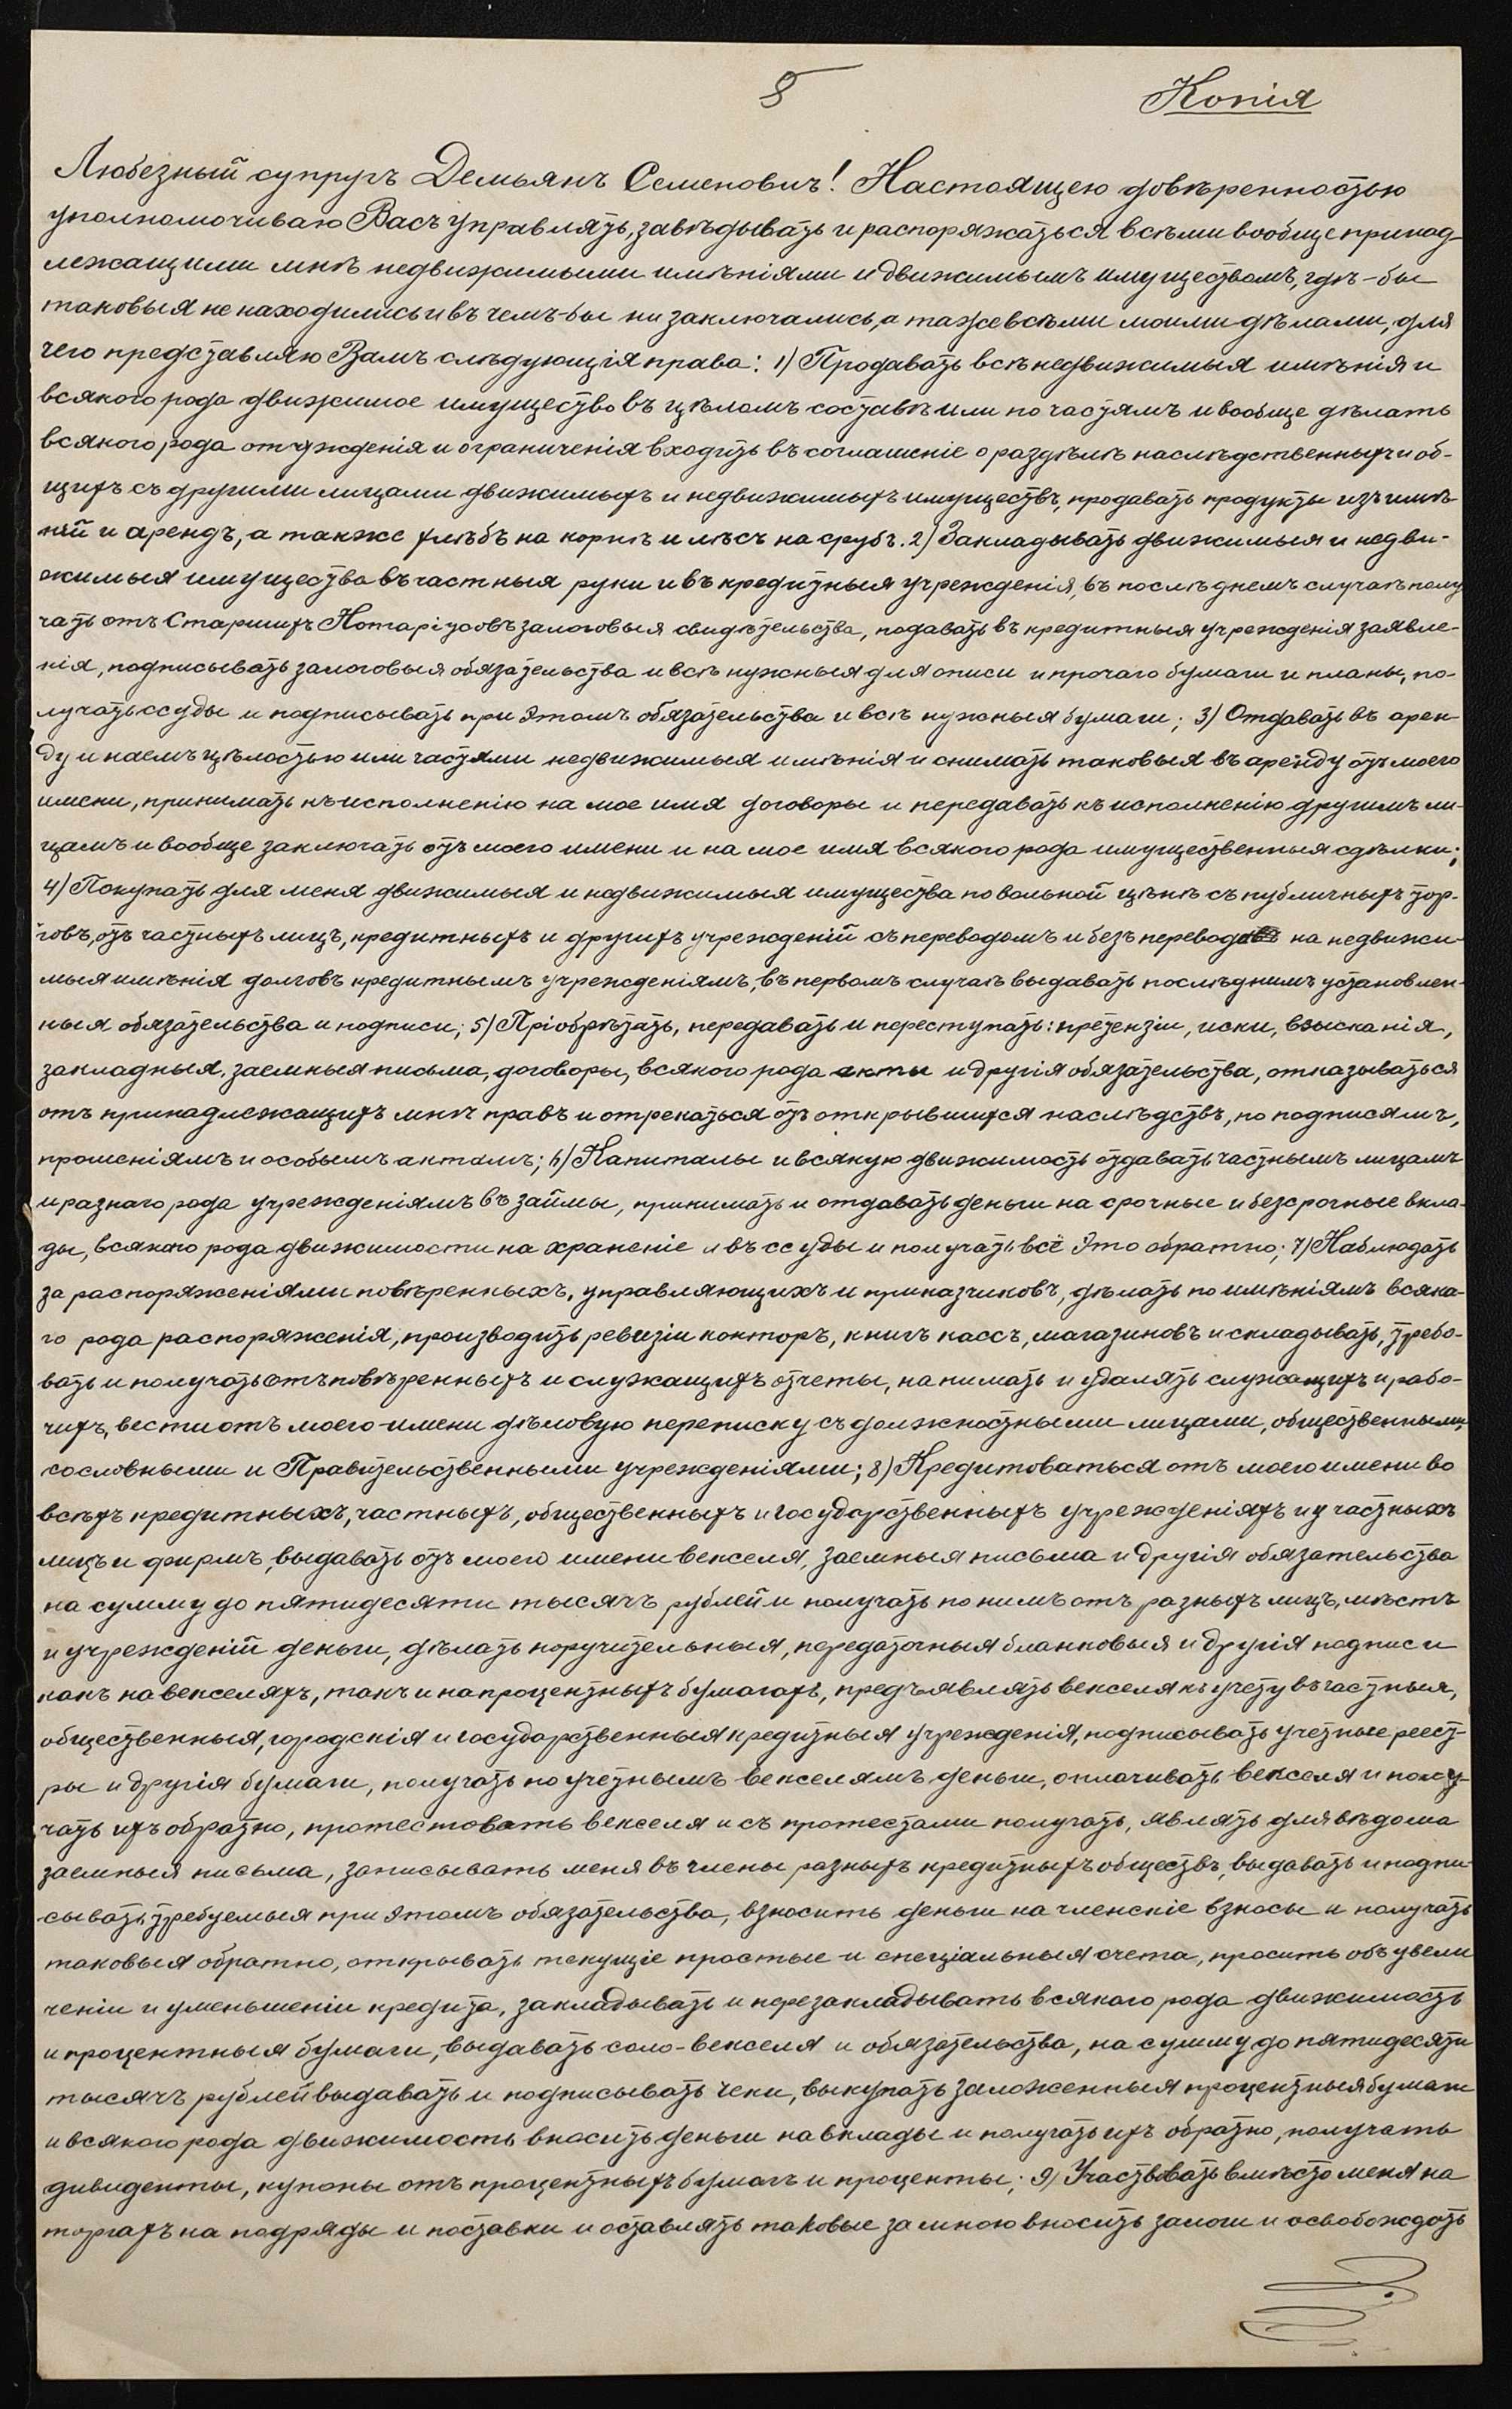 8
Копія
Любезный супругъ Демьянъ Семеновичъ! Настоящею довѣренностью
уполномочиваю Васъ управлять, завѣдывать и распоряжаться всѣми вообще принад-
лежащими мнѣ недвижимыми имѣніями и движимымъ имуществомъ, гдѣ-бы
таковыя не находились и въ чемъ-бы ни заключались, а также всѣми моими дѣлами, для
чего представляю Вамъ слѣдующія права: 1) Продавать всѣ недвижимыя имѣнія и
всякого рода движимое имущество въ цѣломъ составѣ или по частямъ и вообще дѣлать
всякого рода отчужденія и ограниченія входить въ соглашеніе о раздѣлѣ наслѣдственныхъ и об-
щихъ съ другими лицами движимыхъ и недвижимыхъ имуществъ, продавать продукты изъ имѣ-
ній и арендъ, а также хлѣбъ на корнѣ и лѣсъ на срубъ. 2) Закладывать движимыя и недви-
жимыя имущества въ частныя руки и въ кредитныя учрежденія, въ послѣднемъ случаѣ полу
чать отъ Старшихъ Нотаріусовъ залоговыя свидѣтельства, подавать въ кредитныя учрежденія заявле-
нія, подписывать залоговыя обязательства и всѣ нужныя для описи и прочаго бумаги и планы, по-
лучать ссуды и подписывать при этомъ обязательства и всѣ нужныя бумаги; 3) Отдавать въ арен-
ду и наемъ цѣлостью или частями недвижимыя имѣнія и снимать таковыя въ аренду отъ моего
имени, принимать къ исполненію на мое имя договоры и передавать къ исполненію другимъ ли-
цамъ и вообще заключать отъ моего имени и на мое имя всякого рода имущественныя сдѣлки;
4) Покупать для меня движимыя и недвижимыя имущества по вольной цѣнѣ съ публичныхъ тор-
говъ, отъ частныхъ лицъ, кредитныхъ и другихъ учрежденій съ переводомъ и безъ перевода на недвижи-
мыя имѣнія долговъ кредитнымъ учрежденіямъ, въ первомъ случаѣ выдавать послѣднимъ установлен-
ныя обязательства и подписи; 5) Пріобрѣтать, передавать и переступать: претензіи, иски, взысканія,
закладныя, заемныя письма, договоры, всякого рода акты и другія обязательства, отказываться
отъ принадлежащихъ мнѣ правъ и отрекаться отъ открывшихся наслѣдствъ, по подписямъ,
прошеніямъ и особымъ актамъ; 6) Капиталы и всякую движимость отдавать частнымъ лицамъ
и разнаго рода учрежденіямъ въ займы, принимать и отдавать деньги на срочные и безсрочные вкла-
ды, всякого рода движимости на храненіе и въ ссуды и получать всё это обратно; 7) Наблюдать
за распоряженіями повѣренныхъ, управляющихъ и приказчиковъ, дѣлать по имѣніямъ всяка-
го рода распоряженія, производить ревизіи конторъ, книгъ кассъ, магазиновъ и складывать, требо-
вать и получать отъ повѣренныхъ и служащихъ отчеты, нанимать и удалять служащихъ и рабо-
чихъ, вести отъ моего имени дѣловую переписку съ должностными лицами, общественными,
сословными и Правительственными учрежденіями; 8) Кредитоваться отъ моего имени во
всѣхъ кредитныхъ, частныхъ, общественныхъ и государственныхъ учрежденіяхъ и у частныхъ
лицъ и фирмъ, выдавать отъ моего имени векселя, заемныя письма и другія обязательства
на сумму до пятидесяти тысячъ рублей и получать по нимъ отъ разныхъ лицъ, мѣстъ
и учрежденій деньги, дѣлать поручительныя, передаточныя бланковыя и другія подписи
какъ на векселяхъ, такъ и на процентныхъ бумагахъ, предъявлять векселя къ учету въ частныя,
общественныя, городскія и государственныя кредитныя учрежденія, подписывать учетные реест-
ры и другія бумаги, получать по учетнымъ векселямъ деньги, оплачивать векселя и полу-
чать ихъ обратно, протестовать векселя и съ протестами получать, являть для вѣдома
заемныя письма, записывать меня въ члены разныхъ кредитныхъ обществъ, выдавать и подпи-
сывать требуемыя при этомъ обязательства, взносить деньги на членскіе взносы и получать
таковыя обратно, открывать текущіе простые и спеціальныя счета, просить объ увели
ченіи и уменьшеніи кредита, закладывать и перезакладывать всякаго рода движимость
и процентныя бумаги, выдавать соло-векселя и обязательства, на сумму до пятидесяти
тысячъ рублей выдавать и подписывать чеки, выкупать заложенныя процентныя бумаги
и всякого рода движимость вносить деньги на вклады и получать ихъ обратно, получать
дивиденты, купоны отъ процентныхъ бумагъ и проценты; 9) Участвовать вмѣсто меня на
торгахъ на подряды и поставки и оставлять таковые за мною вносить залоги и освобождать